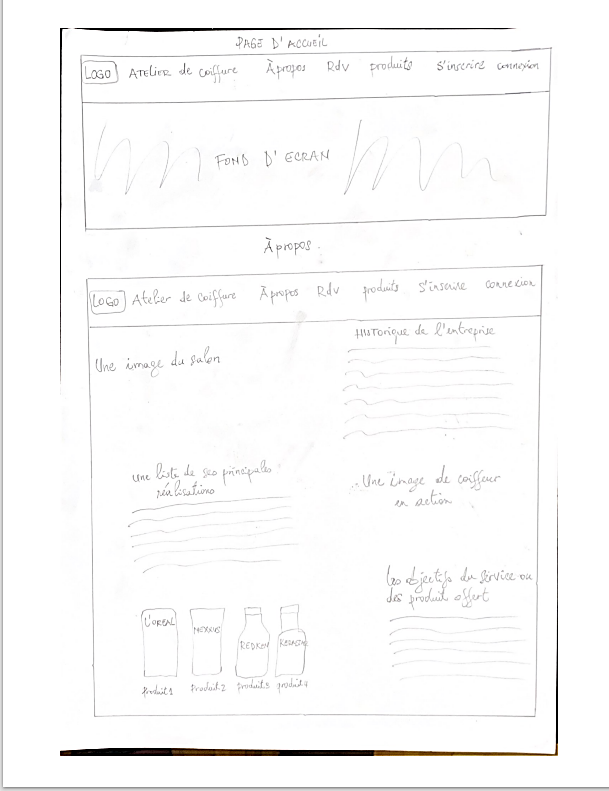 PAGE D'ACCUEIL
LOGO ATELIER de coiffure Àpropos Rdv produits S'inscrire connexion
FOND D'ECRAN
Àpropos.
LOGO Atelier de coiffure Àpropos Rdv produits S'inscrire connexion
Historique de l'entreprise
Une image du salon
une liste de ses principales
réalisations
Une image de coiffeur
en action
les objectifs du service ou
des produit offert
L'OREAL
REDKEN
Produit1 Produit2 produit3 produit4